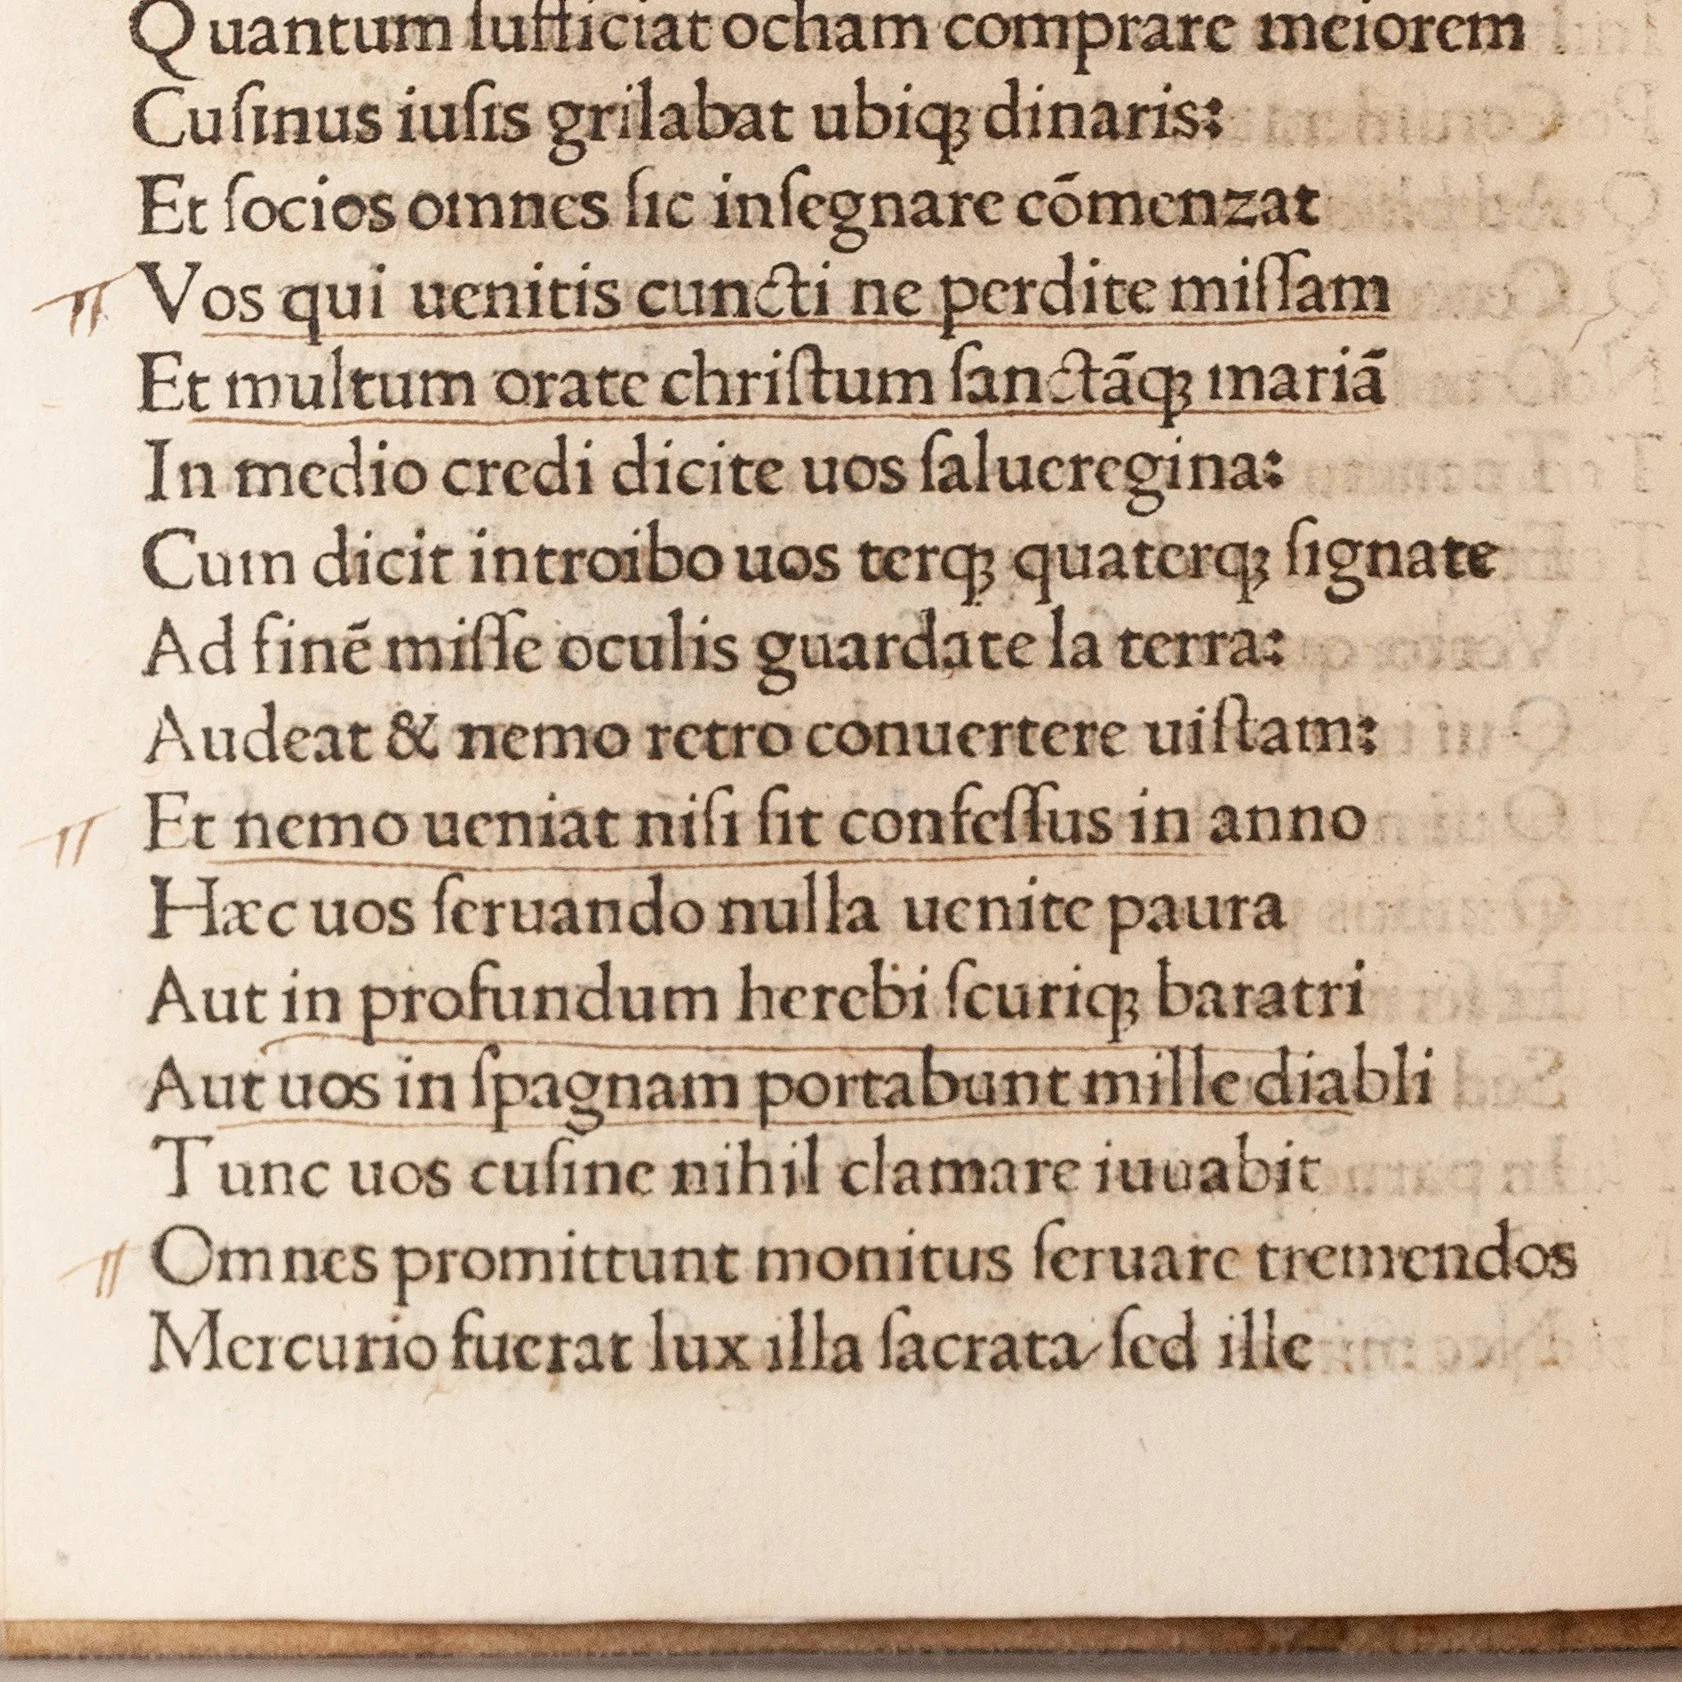 Quantum ſufficiat ocham comprare meiorem
Cuſinus iuſis grilabat ubiqꝫ dinaris:
Et ſocios omnes ſic inſegnare cōmenzat
Vos qui uenitis cuncti ne perdite miſſam
Et multum orate chriſtum ſanctāqꝫ mariā
In medio credi dicite uos ſalueregina:
Cum dicit introibo uos terqꝫ quaterqꝫ ſignate
Ad finē miſſe oculis guardate la terra:
Audeat & nemo retro conuertere uiſtam:
Et nemo ueniat niſi ſit confeſſus in anno
Hæc uos ſeruando nulla uenite paura
Aut in profundum herebi ſcuriqꝫ baratri
Aut uos in ſpagnam portabunt mille diabli
Tunc uos cuſine nihil clamare iuuabit
Omnes promittunt monitus ſeruare tremendos
Mercurio fuerat lux illa ſacrata/ſed ille